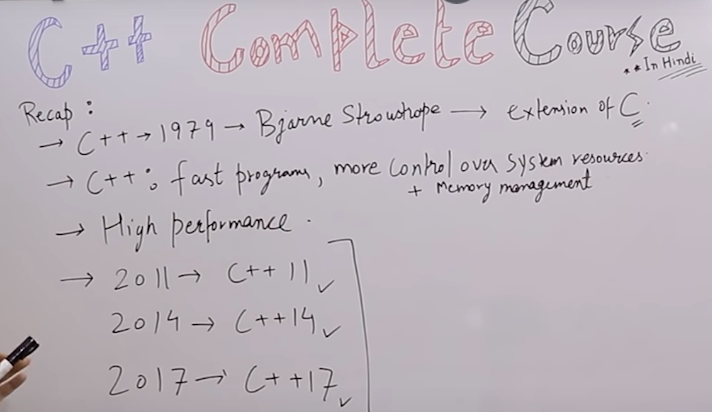 C++ Complete Course
**In Hindi
Recap:
→ C++ → 1979 → Bjarne Stroushope → extension of C.
→ C++: fast programs, more control over system resources
+ Memory management
→ High performance.
→ 2011 → C++ 11 ✓
2014 → C++14 ✓
2017 → C++17 ✓